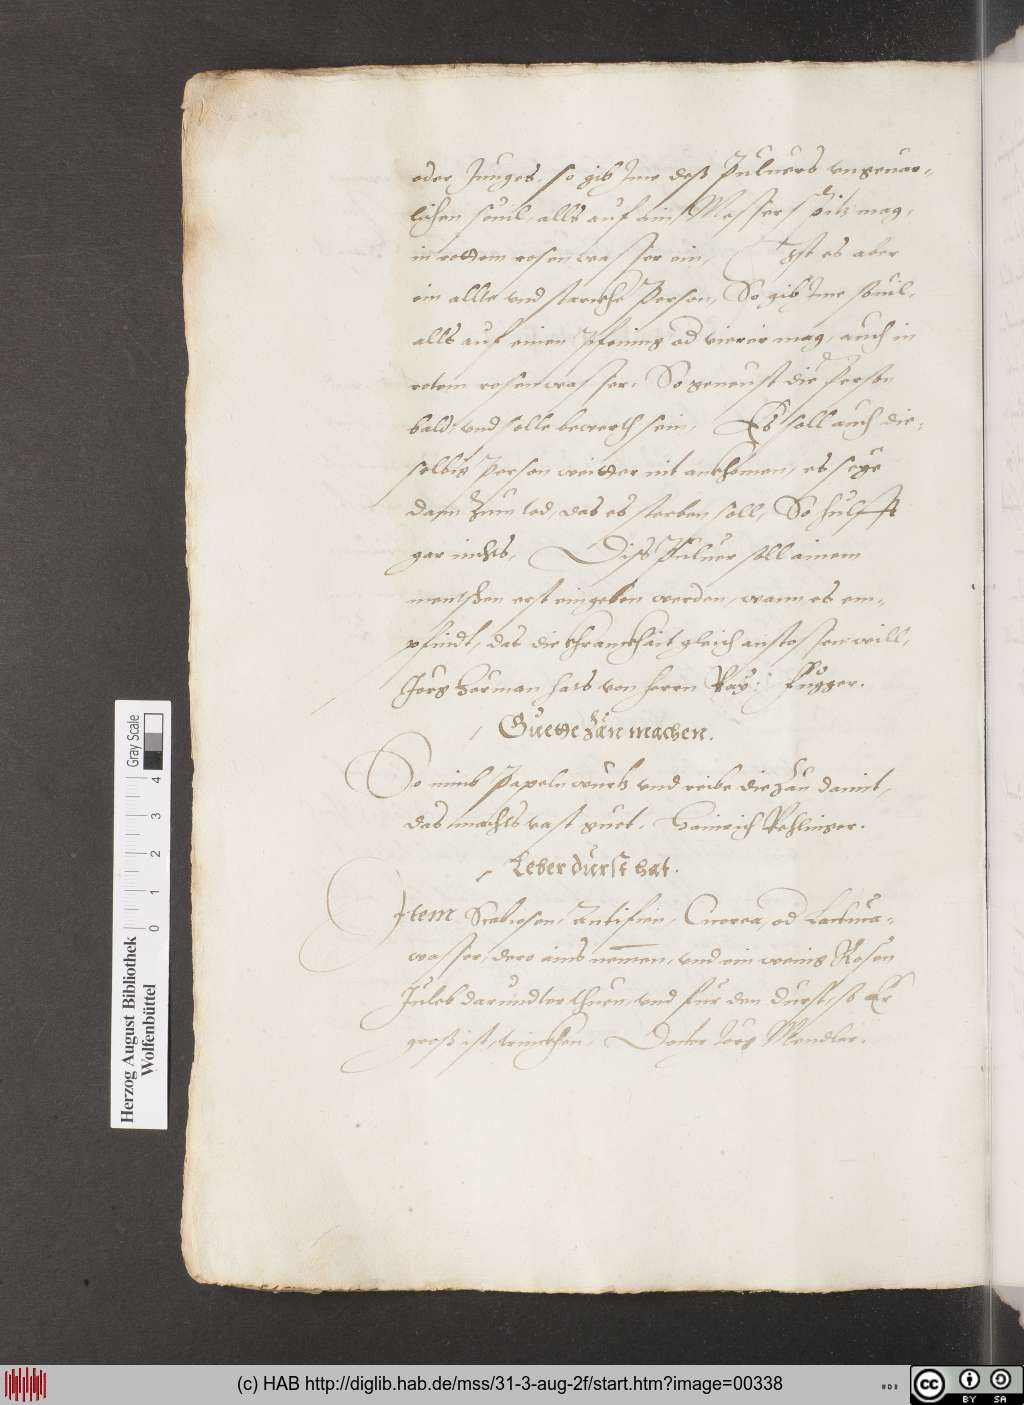 oder Junges, so gib Ime deß Puluers vngeuar-
lichen souil, alls auf ain Messer spitz mag,
in rottem rosenwasser ein, Ist es aber
ein allte vnd starckhe Person, So gib Ime souil,
alls auf einen Pfening od vierer mag, auch in
rotem rosenwasser, So geneust die Person
bald, vnd solle bewerth sein, Es soll auch die-
selbig Person weitter nit ankhomen, es seye
dann zum tod, das es sterben soll, So hulfft
gar nichts, Diss Puluer soll ainem
menschen erst eingeben werden, wann es em-
pfindt, das die khranckhait gleich anstossen will,
Jorg Hörman hats von herrn Ray: Fugger.
Guette Zän machen.
So nimb Papeln wurtz vnd reibe die Zän damit,
das machts vast guet. Hainrich Rehlinger.
Leber durst hat.
Item Scabiosen, Antifien, Cuorea, od
wasser, dero ains nemmen, vnd ein wenig Rosen
Juleb darundter thuen, vnd für den durst, so Er
groß ist, trinckhen. Doctor Jörg Mendler.
Herzog August Bibliothek
Wolfenbüttel
0 1 2 3 4
Gray Scale
(c) HAB http://diglib.hab.de/mss/31-3-aug-2f/start.htm?image=00338
cc BY SA